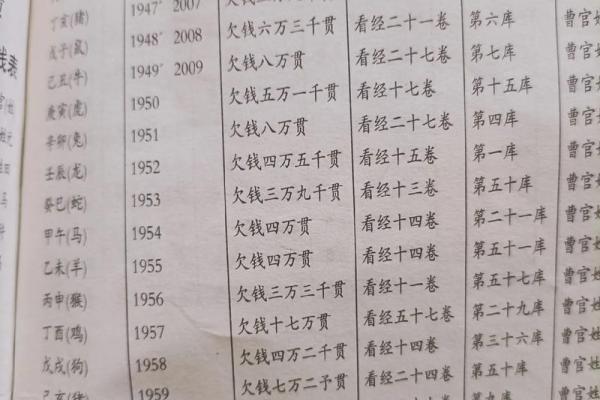 丁亥(猪) 1947 2007
戊子(鼠) 1948 2008 欠钱六万三千贯 看经二十一卷 第六库 曹官姓
己丑(牛) 1949 2009 欠钱八万贯 看经二十七卷 第七库 曹官姓
庚寅(虎) 1950 欠钱五万一千贯 看经十七卷 第十五库 曹官姓
辛卯(兔) 1951 欠钱八万贯 看经二十七卷 第四库 曹官姓
壬辰(龙) 1952 欠钱四万五千贯 看经十五卷 第一库 曹官姓
癸巳(蛇) 1953 欠钱三万九千贯 看经十三卷 第五十库 曹官姓
甲午(马) 1954 欠钱四万贯 看经十四卷 第二十一库 曹官姓
乙未(羊) 1955 欠钱四万贯 看经十四卷 第五十一库 曹官姓
丙申(猴) 1956 欠钱三万三千贯 看经十一卷 第五十七库 曹官姓
丁酉(鸡) 1957 欠钱十七万贯 看经五十七卷 第二十九库 曹官姓
戊戌(狗) 1958 欠钱四万二千贯 看经十四卷 第三十六库 曹官姓
己亥(猪 1959 欠钱七万二予贯 看经二十四卷 第五十库 曹官姓
第九库
钱表